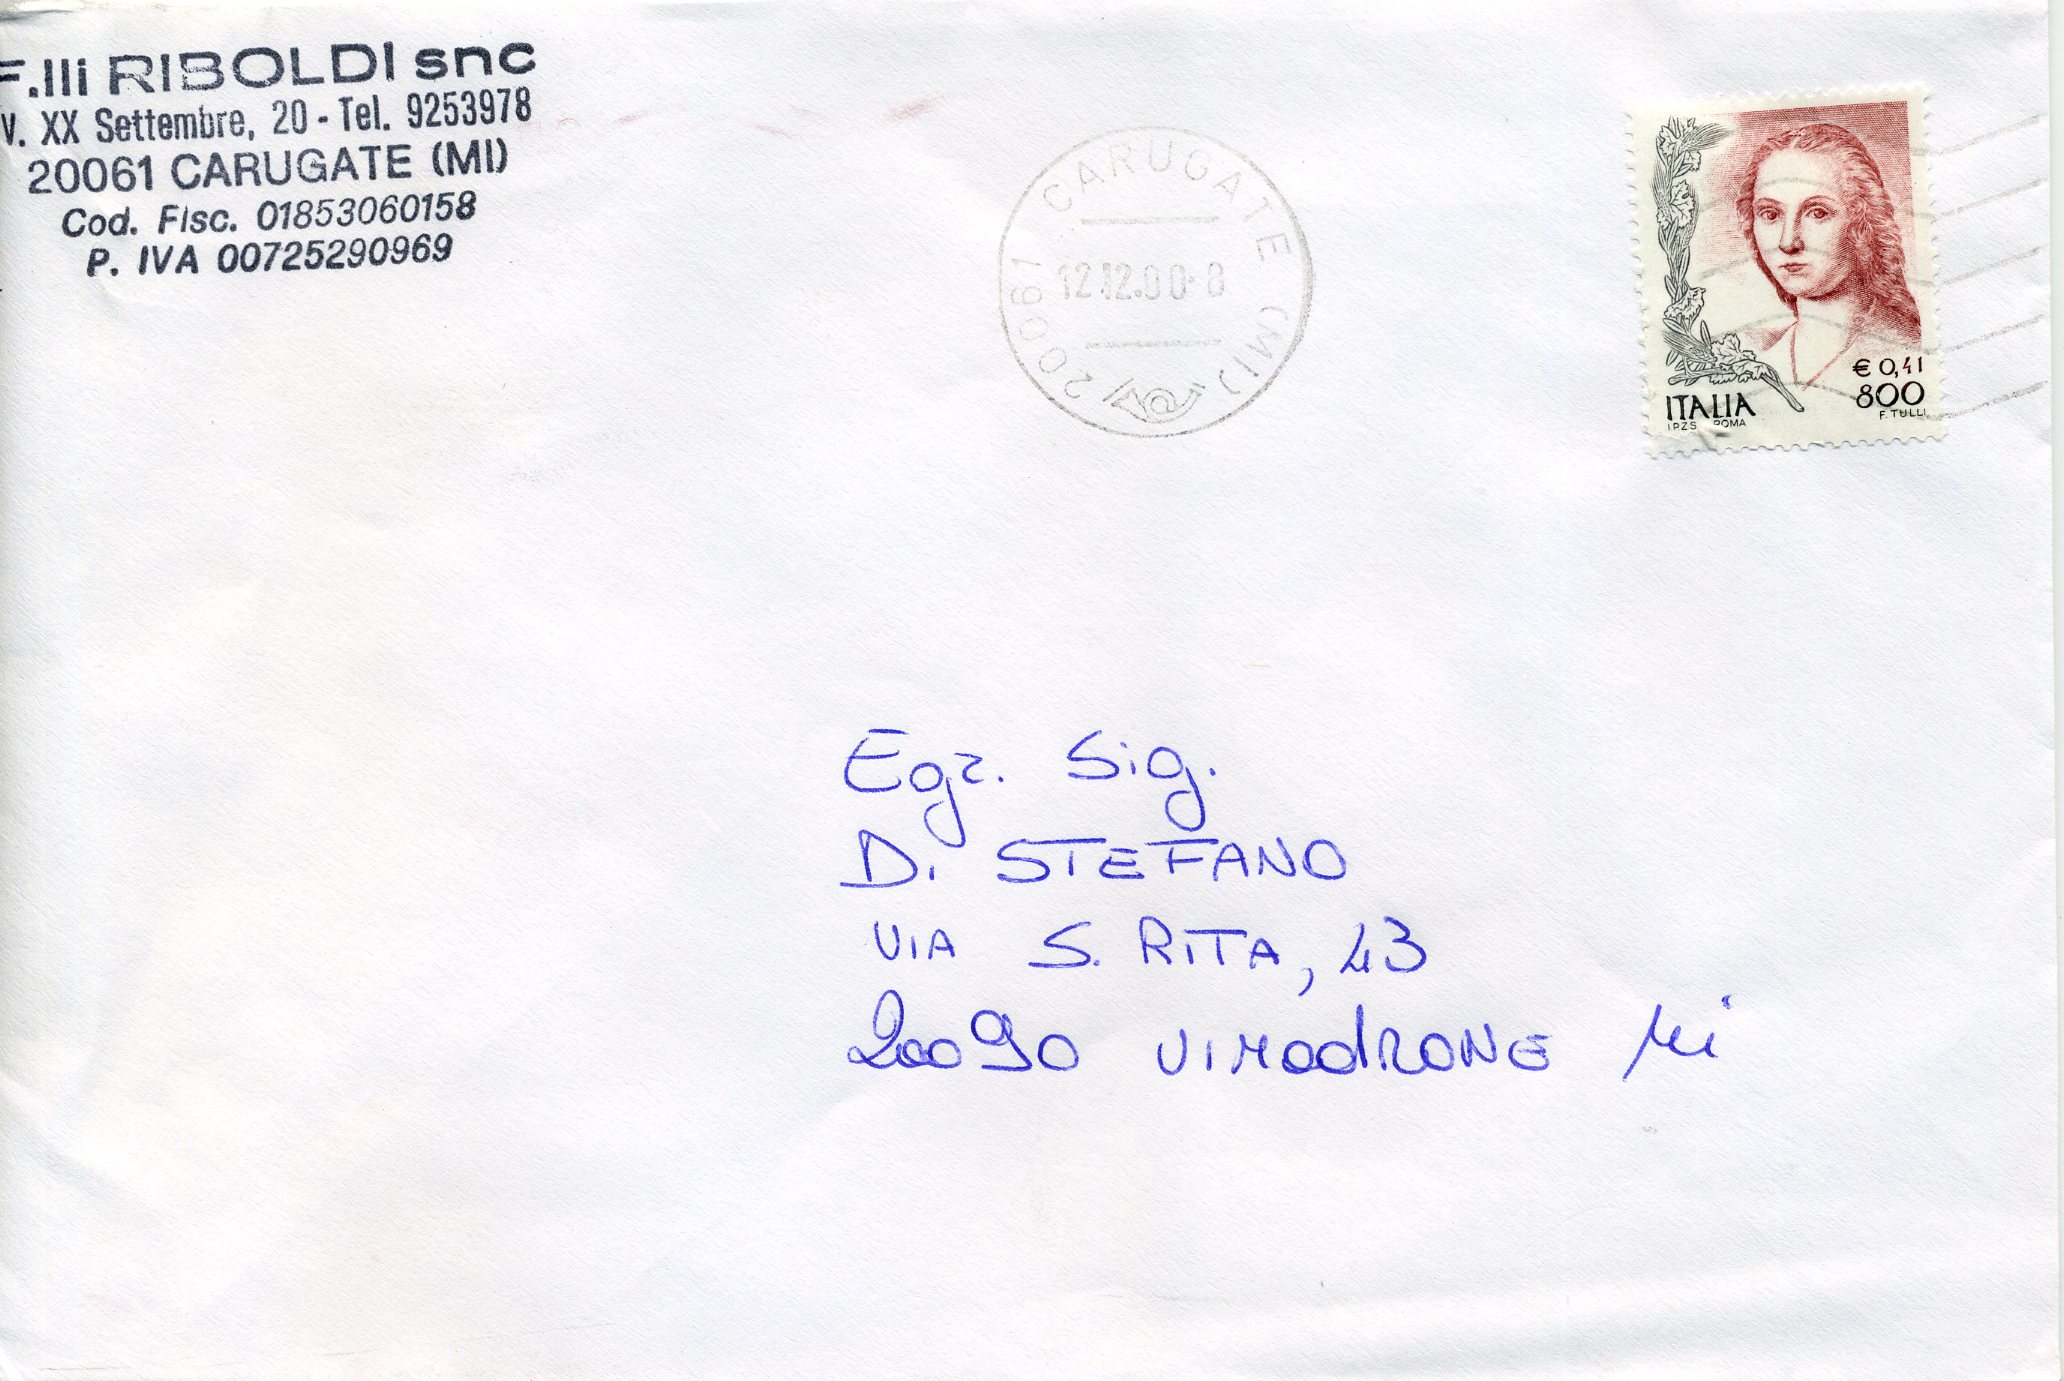 F.lli RIBOLDI snc
V. XX Settembre, 20 - Tel. 9253978
20061 CARUGATE (MI)
Cod. Fisc. 01853060158
P. IVA 00725290969
20061 CARUGATE (MI)
12.12.00-8
€ 0,41
800
ITALIA
F. TULLI
I.P.Z.S. ROMA
Egr. Sig.
Di STEFANO
VIA S. RITA, 43
20090 VIMODRONE Mi